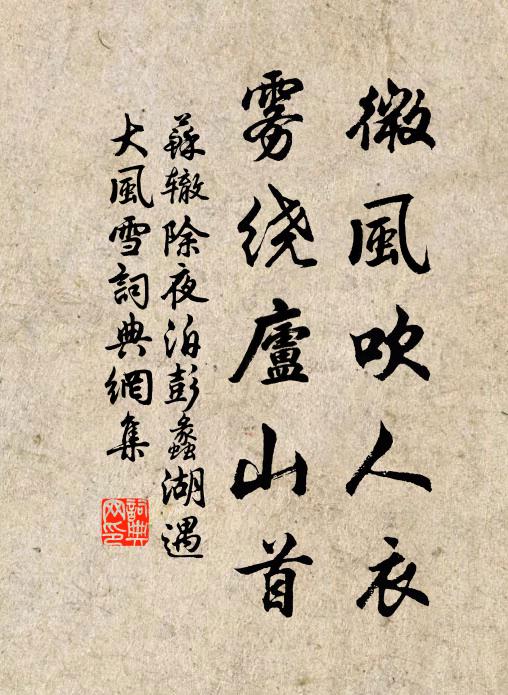 微風吹人衣
雾绕廬山首
蘇辙除夜泊彭蠡湖遇
大風雪詞典網集
詞典
网印